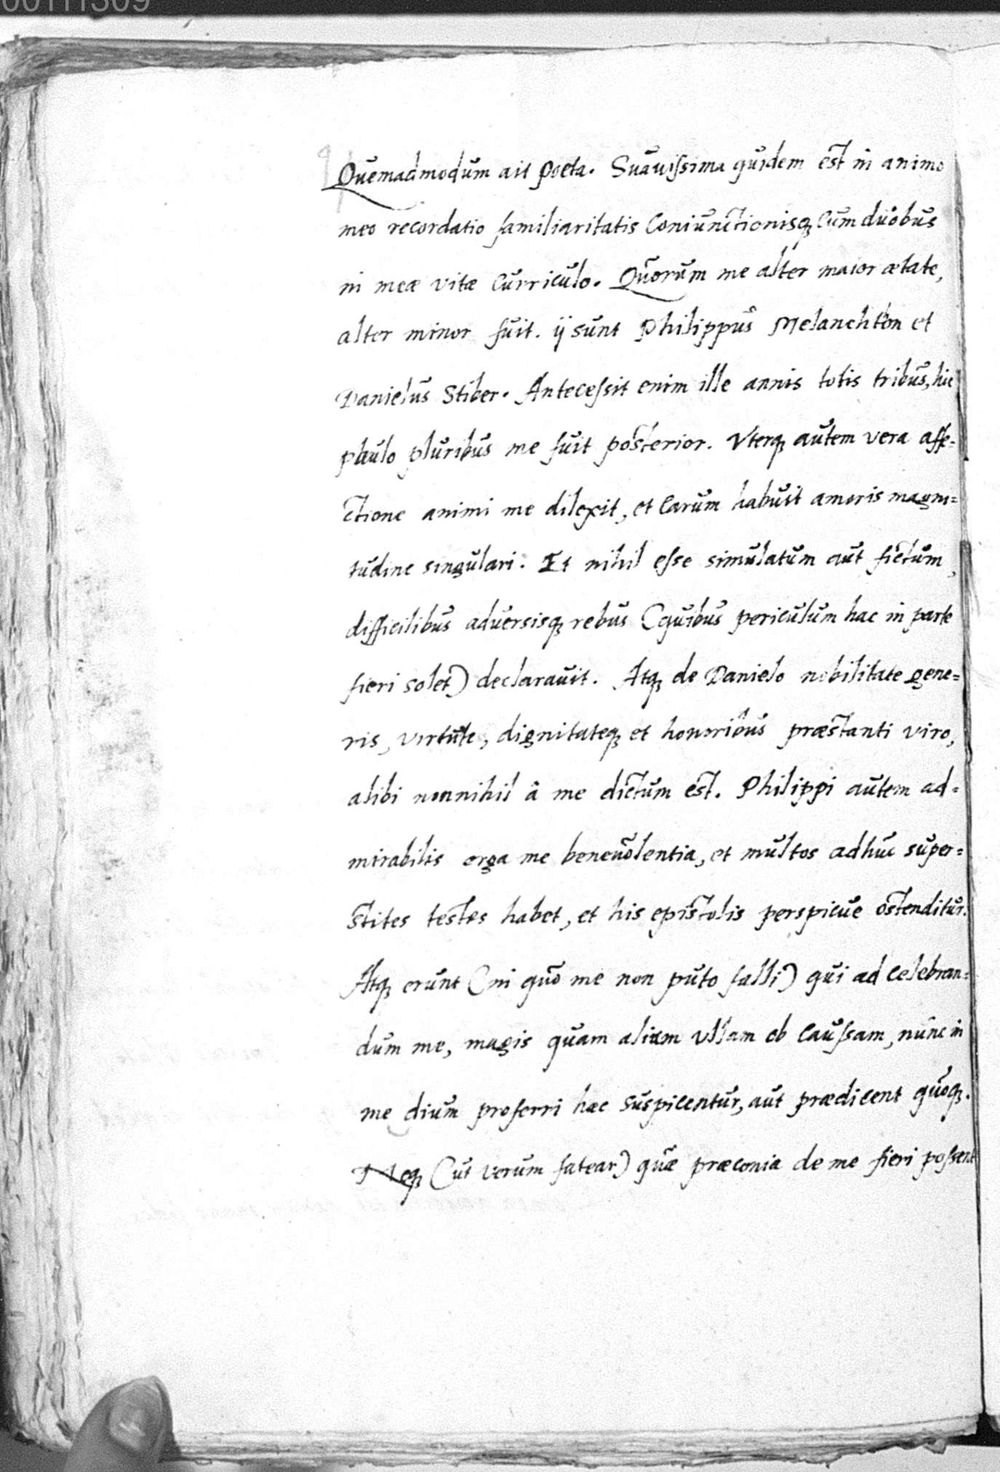 00111309
Quemadmodum ait Poeta. Suavissima quidem est in animo
meo recordatio familiaritatis Coniunctionisq; Cum duobus
in meæ vitæ Curriculo. Quorum me alter maior ætate,
alter minor fuit. ij sunt Philippus Melanchton et
Danielus Stiber. Antecessit enim ille annis totis tribus, hic
paulo pluribus me fuit posterior. Vterq; autem vera affe=
ctione animi me dilexit, et Carum habuit amoris magni=
tudine singulari. Et nihil esse simulatum aut fictum,
difficilibus adversisq; rebus (quibus periculum hac in parte
fieri solet) declarauit. Atq; de Danielo nobilitate gene=
ris, virtute, dignitateq; et honoribus præstanti viro,
alibi nonnihil â me dictum est. Philippi autem ad=
mirabilis erga me beneuolentia, et multos adhuc super=
stites testes habet, et his epistolis perspicue ostenditur.
Atq; erunt (in quo me non puto falli) qui ad Celebran=
dum me, magis quam aliam vllam ob Caussam, nunc in
medium proferri hæc Suspicentur, aut prædicent quoq;.
Neq; (ut verum fatear) quæ præconia de me fieri possent